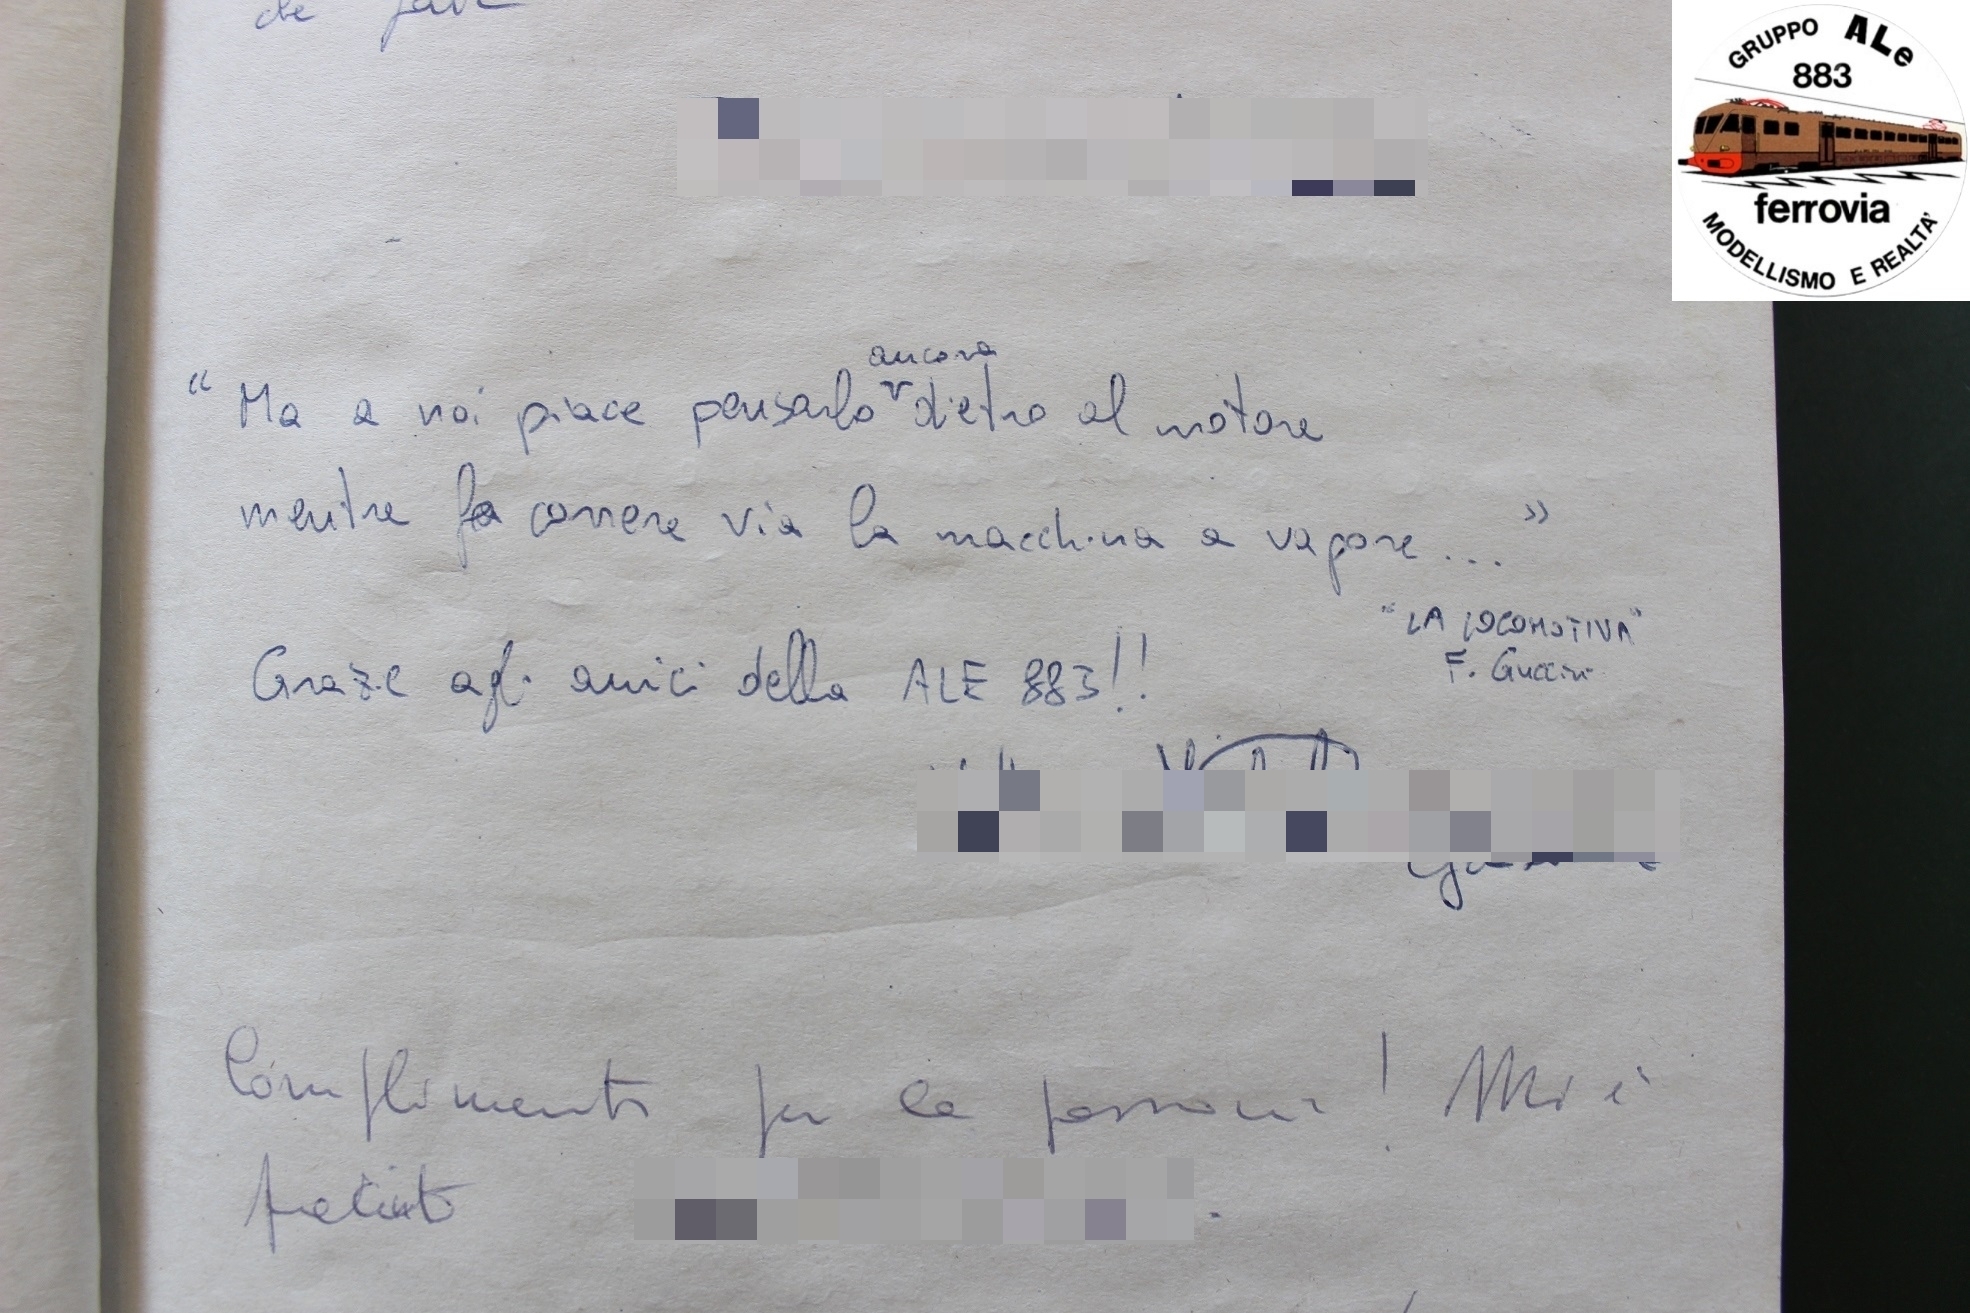 GRUPPO ALe
883
ferrovia
MODELLISMO E REALTA'
de
ancora
“Ma a noi piace pensarlo dietro al motore
mentre fa correre via la macchina a vapore...”
“LA LOCOMOTIVA”
F. Guccini
Grazie agli amici della ALE 883!!
Complimenti per la passione! Mi è
piaciuto